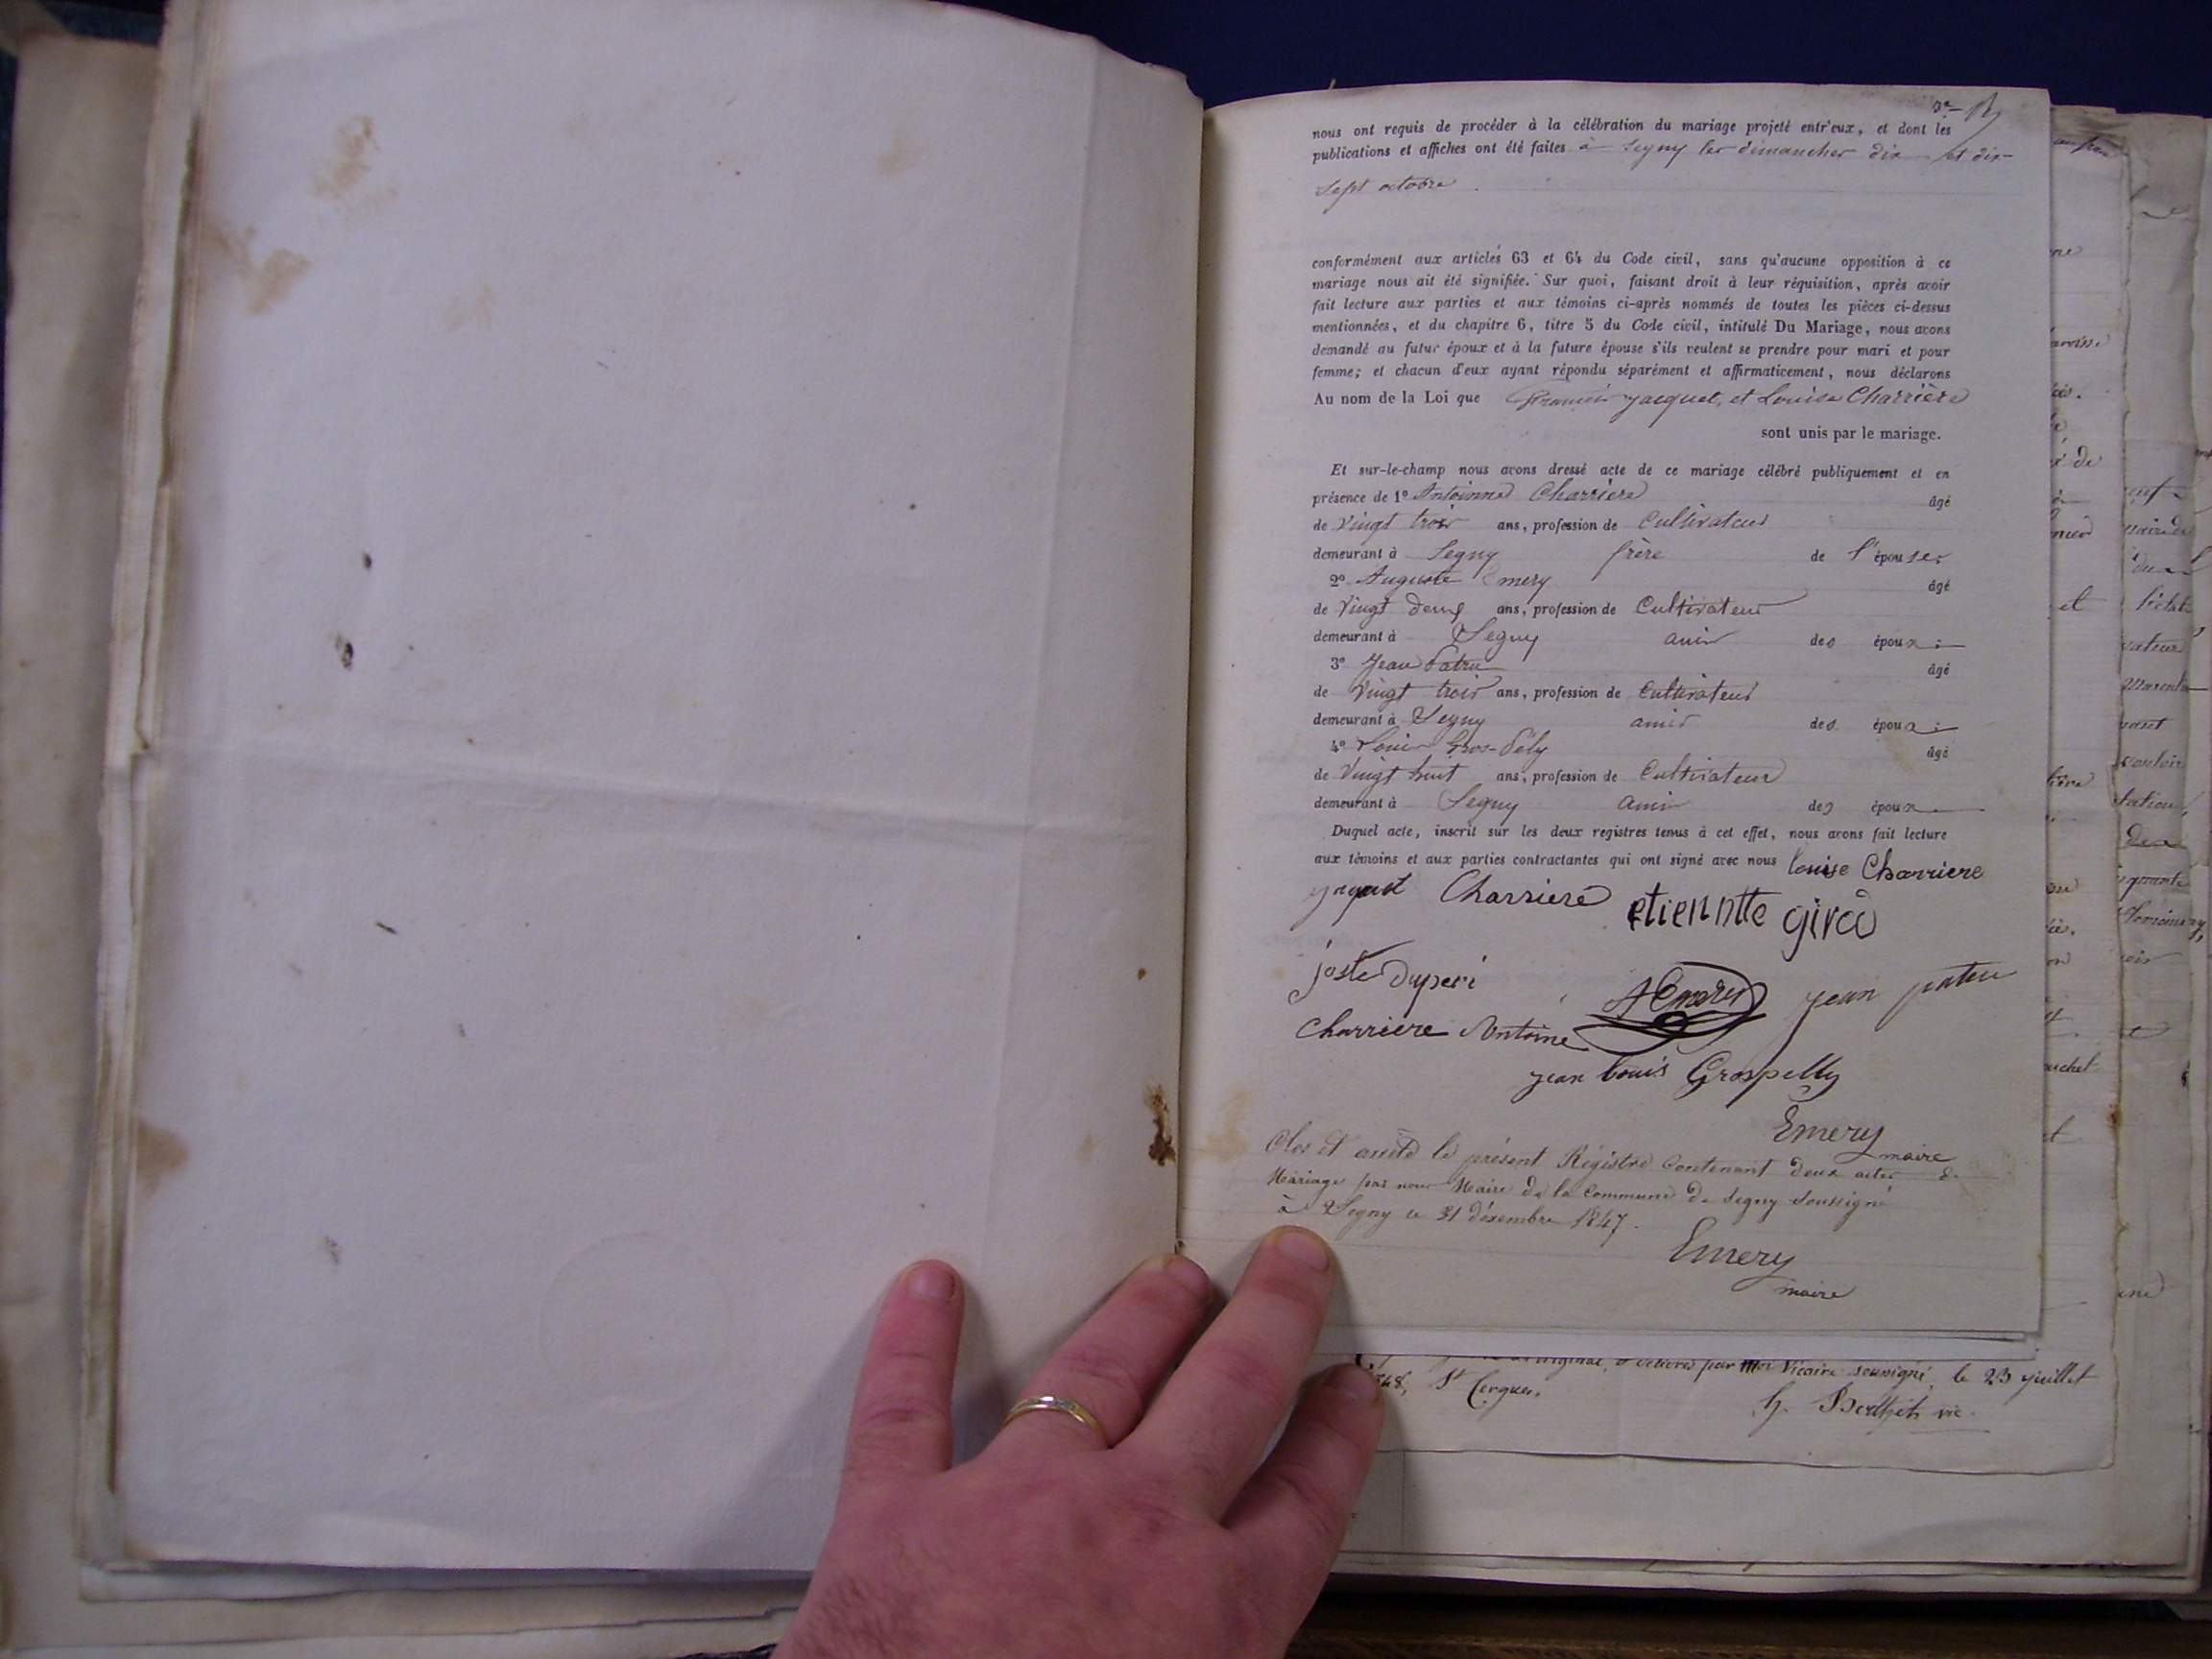 nous ont requis de procéder à la célébration du mariage projeté entr'eux, et dont les
publications et affiches ont été faites à Segny les dimanches dix et dix-
sept octobre.
conformément aux articles 63 et 64 du Code civil, sans qu'aucune opposition à ce
mariage nous ait été signifiée. Sur quoi, faisant droit à leur réquisition, après avoir
fait lecture aux parties et aux témoins ci-après nommés de toutes les pièces ci-dessus
mentionnées, et du chapitre 6, titre 5 du Code civil, intitulé Du Mariage, nous avons
demandé au futur époux et à la future épouse s'ils veulent se prendre pour mari et pour
femme; et chacun d'eux ayant répondu séparément et affirmativement, nous déclarons
Au nom de la Loi que François Jacquet, et Louise Charrière
sont unis par le mariage.
Et sur-le-champ nous avons dressé acte de ce mariage célébré publiquement et en
présence de 1º Antoinne Charrière âgé
de Vingt trois ans, profession de Cultivateur
demeurant à Segny frère de l'épouse.
2º Auguste Emery âgé
de Vingt deux ans, profession de Cultivateur
demeurant à Segny amis des époux :
3º Jean Patru âgé
de Vingt trois ans, profession de Cultivateur
demeurant à Segny amis des époux :
4º Louis Gros-Pély âgé
de Vingt huit ans, profession de Cultivateur
demeurant à Segny amis des époux.
Duquel acte, inscrit sur les deux registres tenus à cet effet, nous avons fait lecture
aux témoins et aux parties contractantes qui ont signé avec nous Louise Charriere
Charriere etienntte girod
joste Duperi AEmery jean patru
Charriere Antoine
jean Louis Grospelly
Emery
maire
Clos et arrêté le présent Régistre Contenant deux actes de
Mariage par nous Maire de la Commune de Segny Soussigné
à Segny le 31 décembre 1847.
Emery
maire
original, délivré par moi Vicaire soussigné, le 23 juillet
St Cergues.
vic.